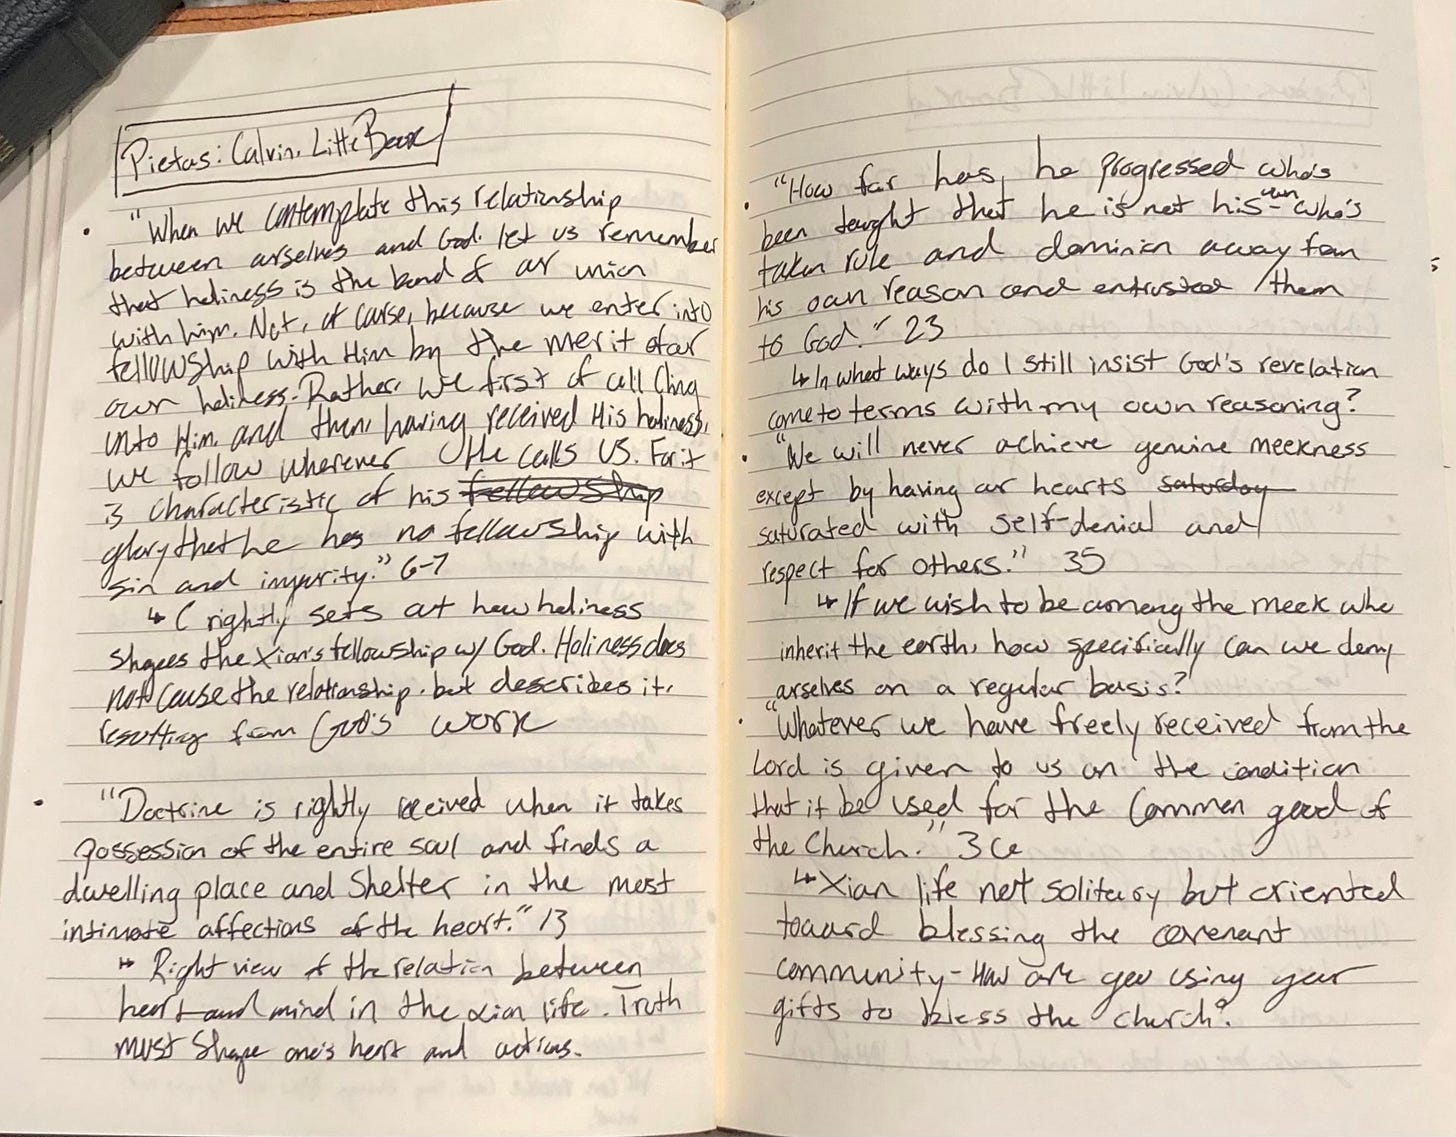 Pietas: Calvin, Little Book
• "When we contemplate this relationship
between ourselves and God. let us remember
that holiness is the bond of our union
with him. Not, of course, because we enter into
fellowship with Him by the merit of our
own holiness. Rather, we first of all cling
unto Him. and then, having received His holiness,
we follow wherever He calls us. For it
is characteristic of his fellowship
glory that he has no fellowship with
sin and impurity." 6-7
↳ C rightly sets out how holiness
shapes the Xian's fellowship w/ God. Holiness does
not cause the relationship. but describes it,
resulting from God's work
• "Doctrine is rightly received when it takes
possession of the entire soul and finds a
dwelling place and shelter in the most
intimate affections of the heart." 13
↳ Right view of the relation between
heart and mind in the xian life. Truth
must shape one's heart and actions.
• "How far has he progressed who's
been taught that he is not his own who's
taken rule and dominion away from
his own reason and entrusted them
to God." 23
↳ In what ways do I still insist God's revelation
come to terms with my own reasoning?
• "We will never achieve genuine meekness
except by having our hearts saturday
saturated with self-denial and
respect for others." 35
↳ If we wish to be among the meek who
inherit the earth, how specifically can we deny
ourselves on a regular basis?
• "Whatever we have freely received from the
Lord is given to us on the condition
that it be used for the common good of
the Church." 36
↳ Xian life not solitary but oriented
toward blessing the covenant
community - How are you using your
gifts to bless the church?